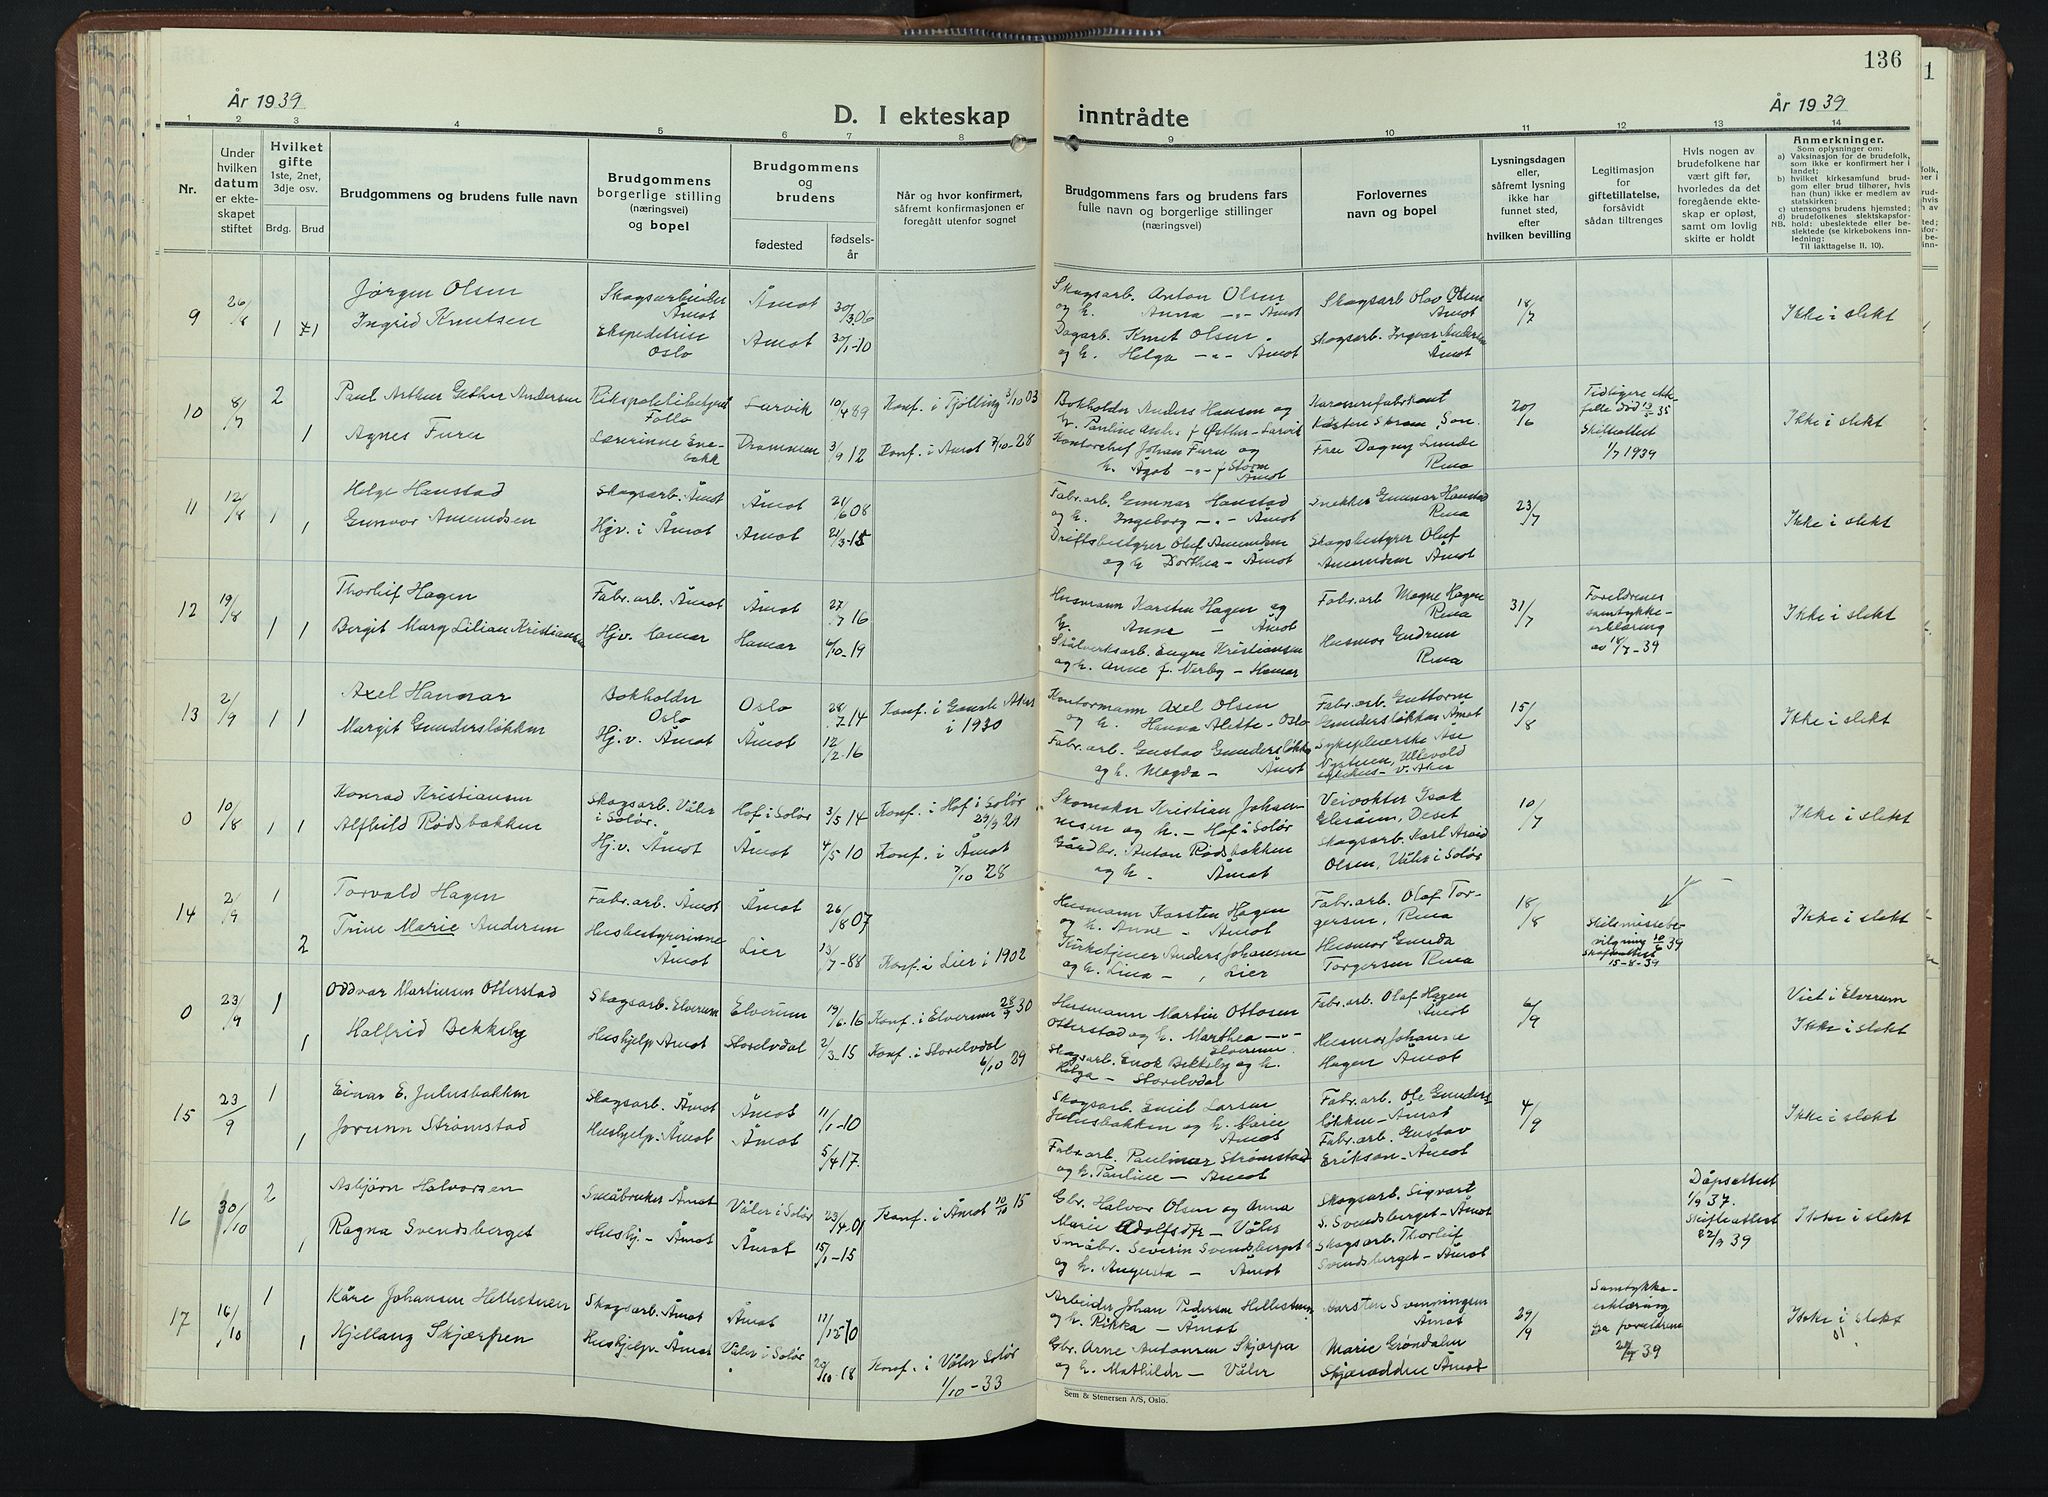 136
År 1939
D. I ekteskap inntrådte
År 1939
1 2 3 4 5 6 7 8 9 10 11 12 13 14
Nr.
Under hvilken datum er ekteskapet stiftet
Hvilket gifte 1ste, 2net, 3dje osv.
Brdg. Brud
Brudgommens og brudens fulle navn
Brudgommens borgerlige stilling (næringsvei) og bopel
Brudgommens og brudens
fødested
fødselsår
Når og hvor konfirmert, såfremt konfirmasjonen er foregått utenfor sognet
Brudgommens fars og brudens fars fulle navn og borgerlige stillinger (næringsvei)
Forlovernes navn og bopel
Lysningsdagen eller, såfremt lysning ikke har funnet sted, efter hvilken bevilling
Legitimasjon for giftetillatelse, forsåvidt sådan tiltrenges
Hvis nogen av brudefolkene har vært gift før, hvorledes da det foregående ekteskap er opløst, samt om lovlig skifte er holdt
Anmerkninger.
Som oplysninger om:
a) Vaksinasjon for de brudefolk, som ikke er konfirmert her i landet;
b) hvilket kirkesamfund brudgom eller brud tilhører, hvis han (hun) ikke er medlem av statskirken;
c) utensogns brudens hjemsted;
d) brudefolkenes slektskapsforhold: ubeslektede eller beslektede (se kirkebokens innledning:
NB.
Til iakttagelse II. 10).
9 26/8 1 1 Jørgen Olsen Skogsarbeider Åmot Åmot 30/3 06
Ingrid Knutsen Ekspeditrise Oslo Åmot 30/1-10
Skogsarb. Anton Olsen
og h. Anna -"- Åmot
Dagarb. Knut Olsen
og h. Helga -"- Åmot
Skogsarb Olav Olsen Åmot
Skogsarb. Ingvar Andersen Åmot
18/7 Ikke i slekt
10 8/7 2 Paul Arthur Gether Andersen Rikspolitibetjent Follo Larvik 10/4 89 Konf. i Tjølling 3/10 03
1 Agnes Furu Lærerinne Enebakk Drammen 3/9 12 Konf. i Åmot 7/10-28
Bokholder Anders Hansen og
h. Pauline Larvik
Kontorchef Johan Furu og
h. Ågot -"- f Storm Åmot
Karosserifabrikant
Skram, Son.
Fru Dagny Lunde Rena
20/6
Tidligere ektefelle død 35
Skifteattest
1/7 1939
Ikke i slekt
11 12/8 1 1 Helge Hanstad Skogsarb. Åmot Åmot 21/6 08
Gunvor Amundsen Hjv. i Åmot Åmot 21/3-15
Fabr.arb. Gunnar Hanstad
og h. Ingeborg -"- Åmot
Driftsbestyrer Oluf Amundsen
og h Dorthea - Åmot
Snekker Gunnar Hanstad Rena
Skogsbestyrer Oluf Amundsen Åmot
23/7 Ikke i slekt
12 19/8 1 1 Thorleif Hagen Fabr.arb. Åmot Åmot 27/7 16
Bergit Marg Lilian Kristiansen Hjv. Hamar Hamar 6/10-19
Husmann Karsten Hagen og
h. Anne - Åmot
Stålverksarb. Eugen Kristiansen
og h. Anne f. Verby - Hamar
Fabr.arb Magne Hagen Rena
Husmor Gudrun Rena
31/7
Foreldrenes samtykkeerklæring av 18/7-39
Ikke i slekt
13 2/9 1 1 Axel Hannar Bokholder Oslo Oslo 28/7 14 Konf. i Gamle Aker i 1930
Margit Gundersløkken Hj.v. Åmot Åmot 12/2-16
Kontormann Axel Olsen
og h. Hanna Alette - Oslo
Fabr.arb. Gustav Gundersløkken
og h. Magda - Åmot
Fabr.arb. Guttorm Gundersløkken Åmot
Sykepleierske Åse Nystuen, Ullevold sykehus - V. Aker
15/8 Ikke i slekt
0 10/8 1 1 Konrad Kristiansen Skogsarb. Våler i Solør. Hof i Solør 3/5 14 Konf. i Hof i Solør
Alfhild Rødsbakken Hj.v. Åmot Åmot 4/5 10 Konf. i Åmot 7/10 28
Skomaker Kristian Johannesen og h. - Hof i Solør
Gårdbr. Anton Rødsbakken
og h. - Åmot
Veivokter Isak Eliesen, Deset
Skogsarb. Karl Arvid Olsen, Våler i Solør
10/7 Ikke i slekt
14 2/9 1 Torvald Hagen Fabr.arb. Åmot Åmot 26/8 07
2 Trine Marie Andersen Husbestyrerinne Åmot Lier 13/7-88 Konf. i Lier i 1902
Husmann Karsten Hagen
og h. Anne - Åmot
Kirketjener Anders Johansen
og h. Lina - , Lier
Fabr.arb. Olaf Torgersen, Rena
Husmor Gunda Torgersen Rena
18/8
Skilsmissebevilgning 10/6 39
Skifteattest 15-8-39
Ikke i slekt
0 23/9 1 Oddvar Martinsen Otterstad Skogsarb. Elverum Elverum 19/6-16 Konf. i Elverum 28/9 30
1 Halfrid Bekkeby Hushjelp Åmot Storelvdal 2/3-15 Konf. i Storelvdal 6/10 29
Husmann Martin Ottosen
Otterstad og h. Marthea -"- Elverum.
Skogsarb. Enok Bekkeby og h.
Helga - Storelvdal
Fabr.arb. Olaf Hagen Åmot
Husmor Johanne Hagen Åmot
6/9 Viet i Elverum
Ikke i slekt
15 23/9 1 Einar E. Julusbakken Skogsarb. Åmot Åmot 11/1-10
1 Jorunn Strømstad Hushjelp. Åmot Åmot 5/4 17.
Skogsarb. Emil Larsen
Julusbakken og h. Marie Åmot
Fabr.arb. Paulinus Strømstad
og h. Pauline - Åmot
Fabr.arb. Ole Gundersløkken - Åmot
Fabr.arb. Gustav Erikson - Åmot
4/9 Ikke i slekt
16 30/10 2 Asbjørn Halvorsen Småbruker Åmot Våler i Solør 23/4 01 Konf. i Åmot 10/10 15
1 Ragna Svendsberget Hushj. - Åmot Åmot 15/1-15
Gbr. Halvor Olsen og Anna
Marie Adolfsdtr - Våler
Småbr. Severin Svendsberget
og h. Augusta - Åmot
Skogsarb. Sigvart S. Svendsberget - Åmot
Skogsarb. Thorleif Svendsberget - Åmot
Dåpsattest 1/9 37.
Skifteattest 22/9 39
Ikke i slekt
17 14/10 1 Kåre Johansen Hellestuen Skogsarb. Åmot Åmot
1 Kjellaug Skjærpen Hushjelp. Åmot Våler i Solør 20/10-18 Konf. i Våler Solør 1/10-33
Arbeider Johan Pedersen Hellestuen
og h. Rikka - Åmot
Gbr. Arne Antonsen Skjærpa
og h. Mathilde - Våler
Karsten Svenningsen Åmot
Marie Grøndalen
Skjæraddeu Åmot
29/9
Samtykkeerklæring fra foreldrene 39
Ikke i slekt
Sem & Stenersen A/S, Oslo.